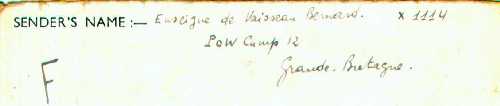 SENDER'S NAME :— Enseigne de Vaisseau Bernard. X 1114
PoW Camp 12
Grande-Bretagne.
F